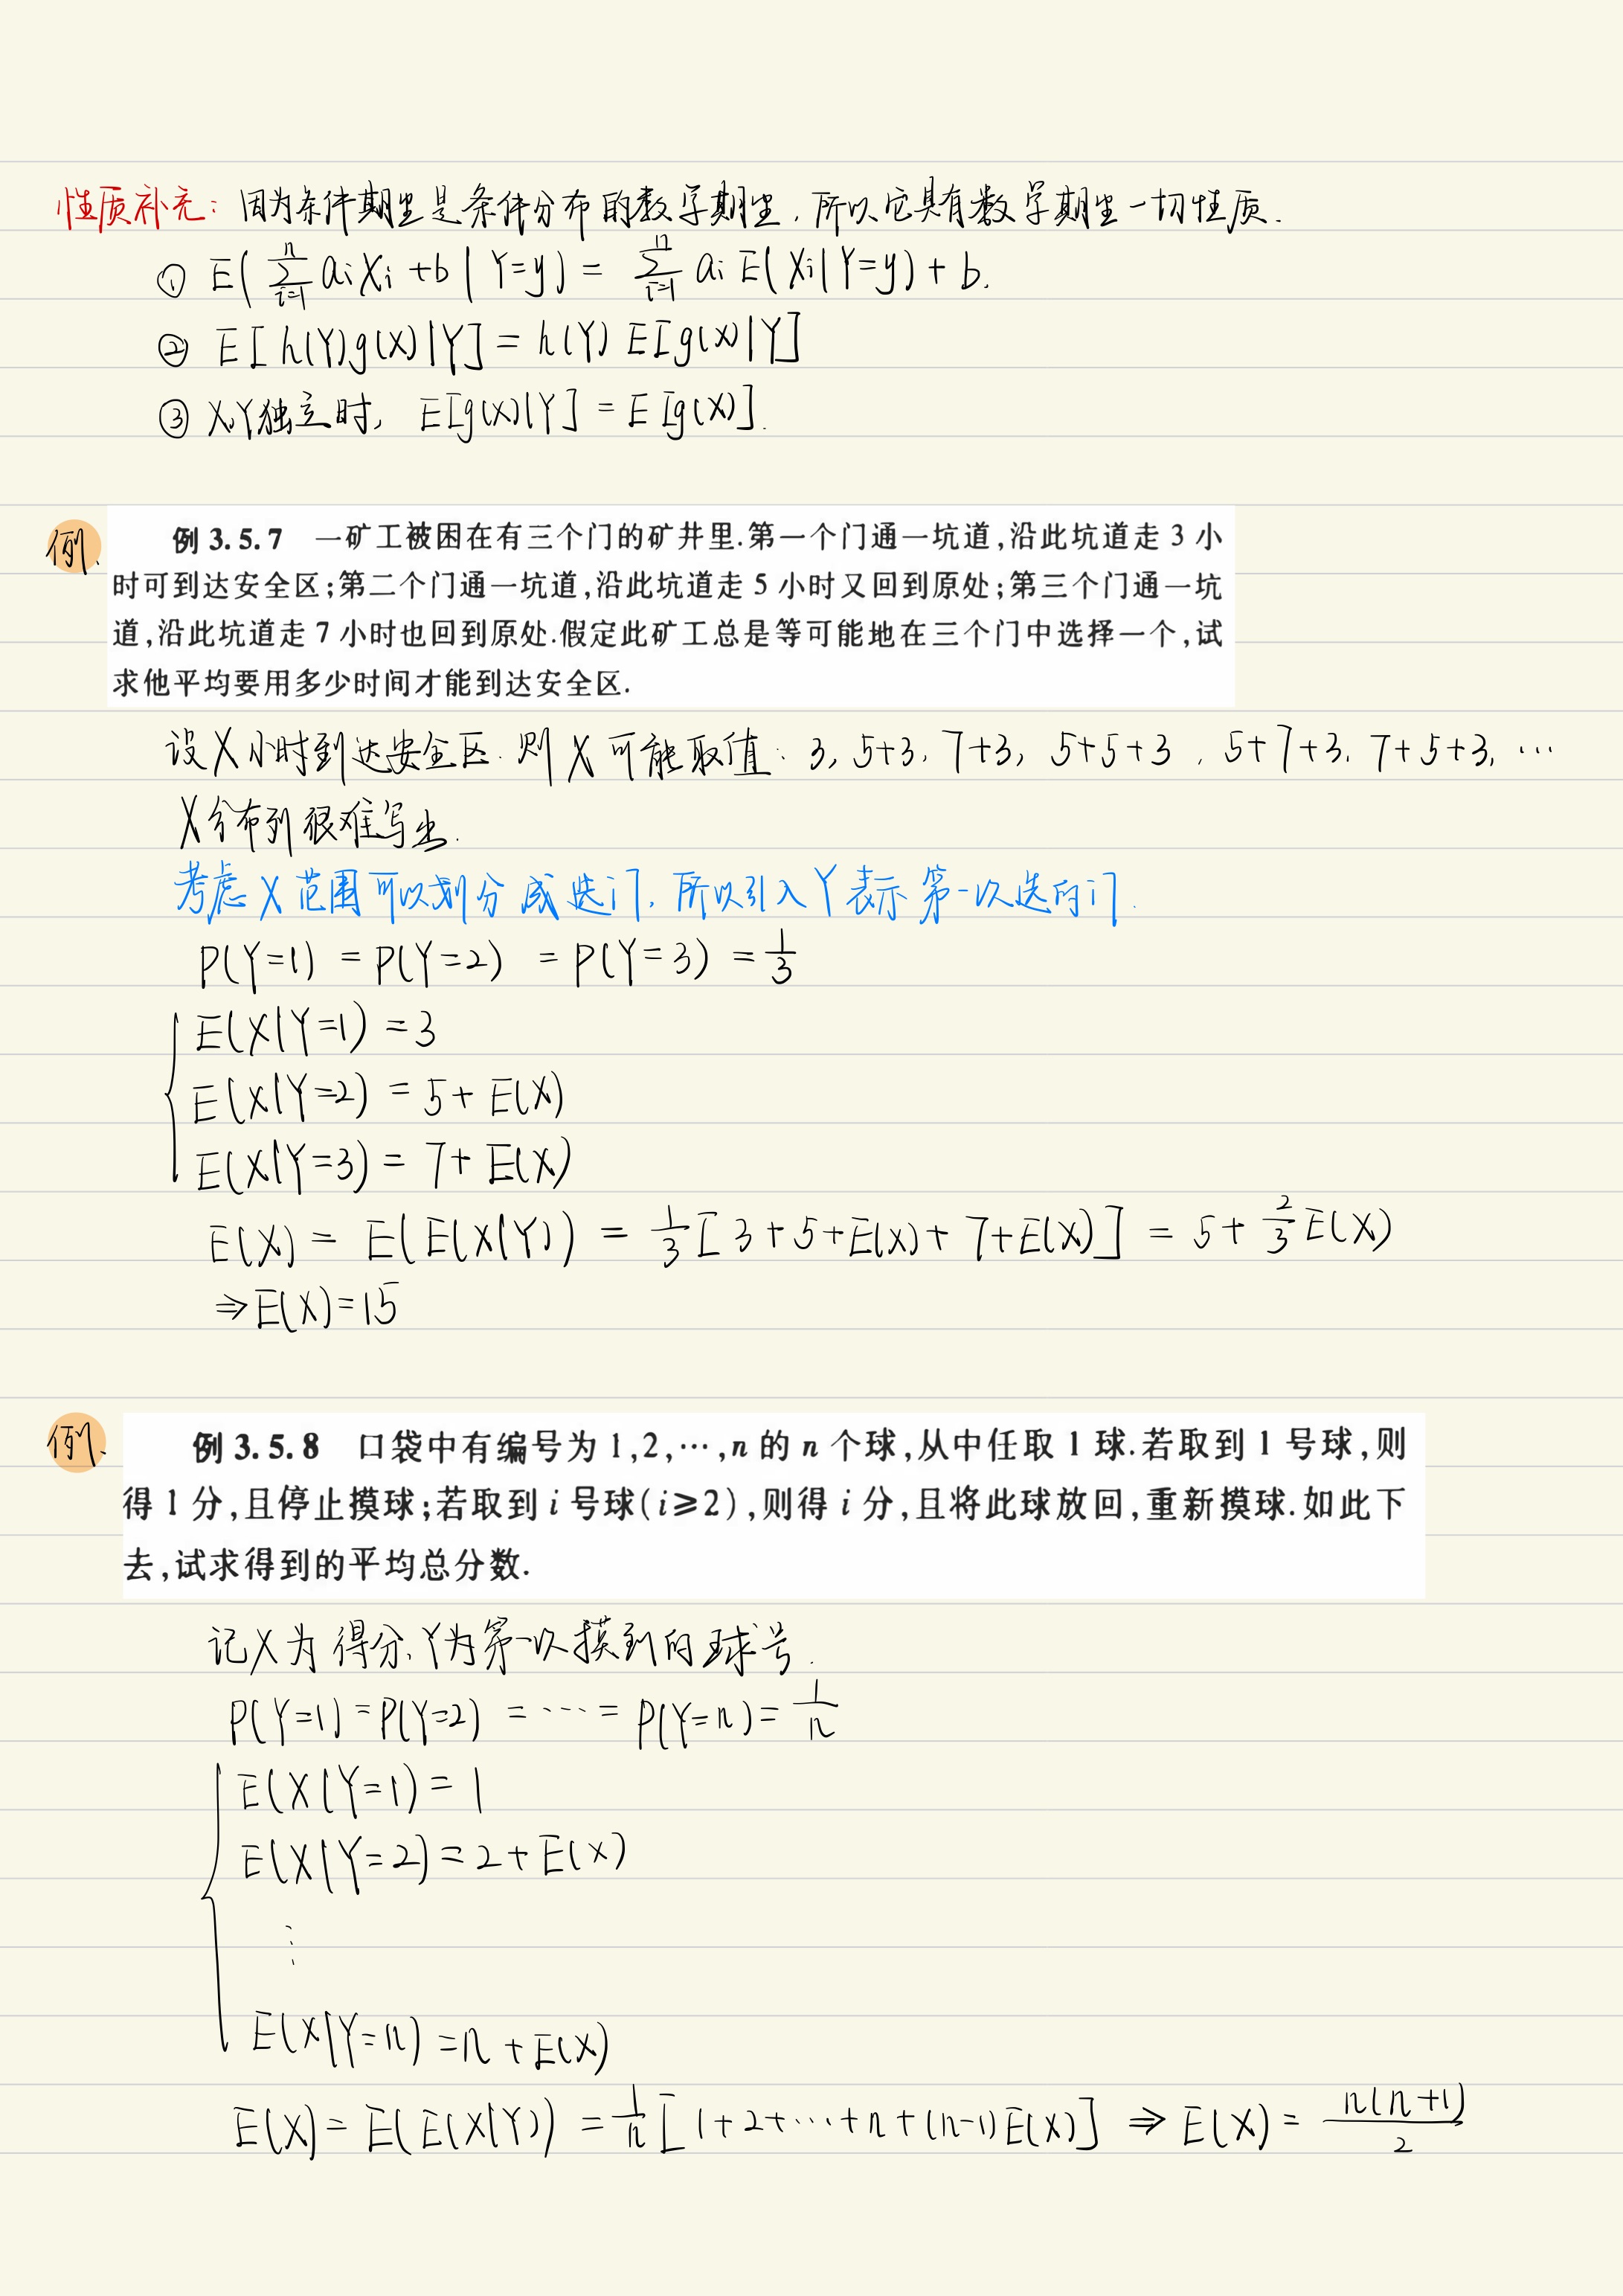 性质补充：因为条件期望是条件分布的数学期望，所以它具有数学期望一切性质.
① E(∑_{i=1}^{n} aiXi + b | Y=y) = ∑_{i=1}^{n} ai E(Xi|Y=y) + b.
② E[h(Y)g(X)|Y] = h(Y) E[g(X)|Y]
③ X,Y独立时, E[g(X)|Y] = E[g(X)].
例、 例 3.5.7 一矿工被困在有三个门的矿井里.第一个门通一坑道,沿此坑道走 3 小
时可到达安全区;第二个门通一坑道,沿此坑道走 5 小时又回到原处;第三个门通一坑
道,沿此坑道走 7 小时也回到原处.假定此矿工总是等可能地在三个门中选择一个,试
求他平均要用多少时间才能到达安全区.
设X小时到达安全区. 则X可能取值: 3, 5+3, 7+3, 5+5+3, 5+7+3, 7+5+3, …
X分布列很难写出.
考虑X范围可以划分成选门, 所以引入Y表示第一次选的门.
P(Y=1) = P(Y=2) = P(Y=3) = 1/3
E(X|Y=1) = 3
E(X|Y=2) = 5 + E(X)
E(X|Y=3) = 7 + E(X)
E(X) = E(E(X|Y)) = 1/3 [3 + 5 + E(X) + 7 + E(X)] = 5 + 2/3 E(X)
⇒ E(X) = 15
例、 例 3.5.8 口袋中有编号为 1,2,⋯,n 的 n 个球,从中任取 1 球.若取到 1 号球,则
得 1 分,且停止摸球;若取到 i 号球(i≥2),则得 i 分,且将此球放回,重新摸球.如此下
去,试求得到的平均总分数.
记X为得分, Y为第一次摸到的球号.
P(Y=1) = P(Y=2) = ⋯ = P(Y=n) = 1/n
E(X|Y=1) = 1
E(X|Y=2) = 2 + E(X)
⋮
E(X|Y=n) = n + E(X)
E(X) = E(E(X|Y)) = 1/n [1+2+⋯+n+(n-1)E(X)] ⇒ E(X) = n(n+1)/2